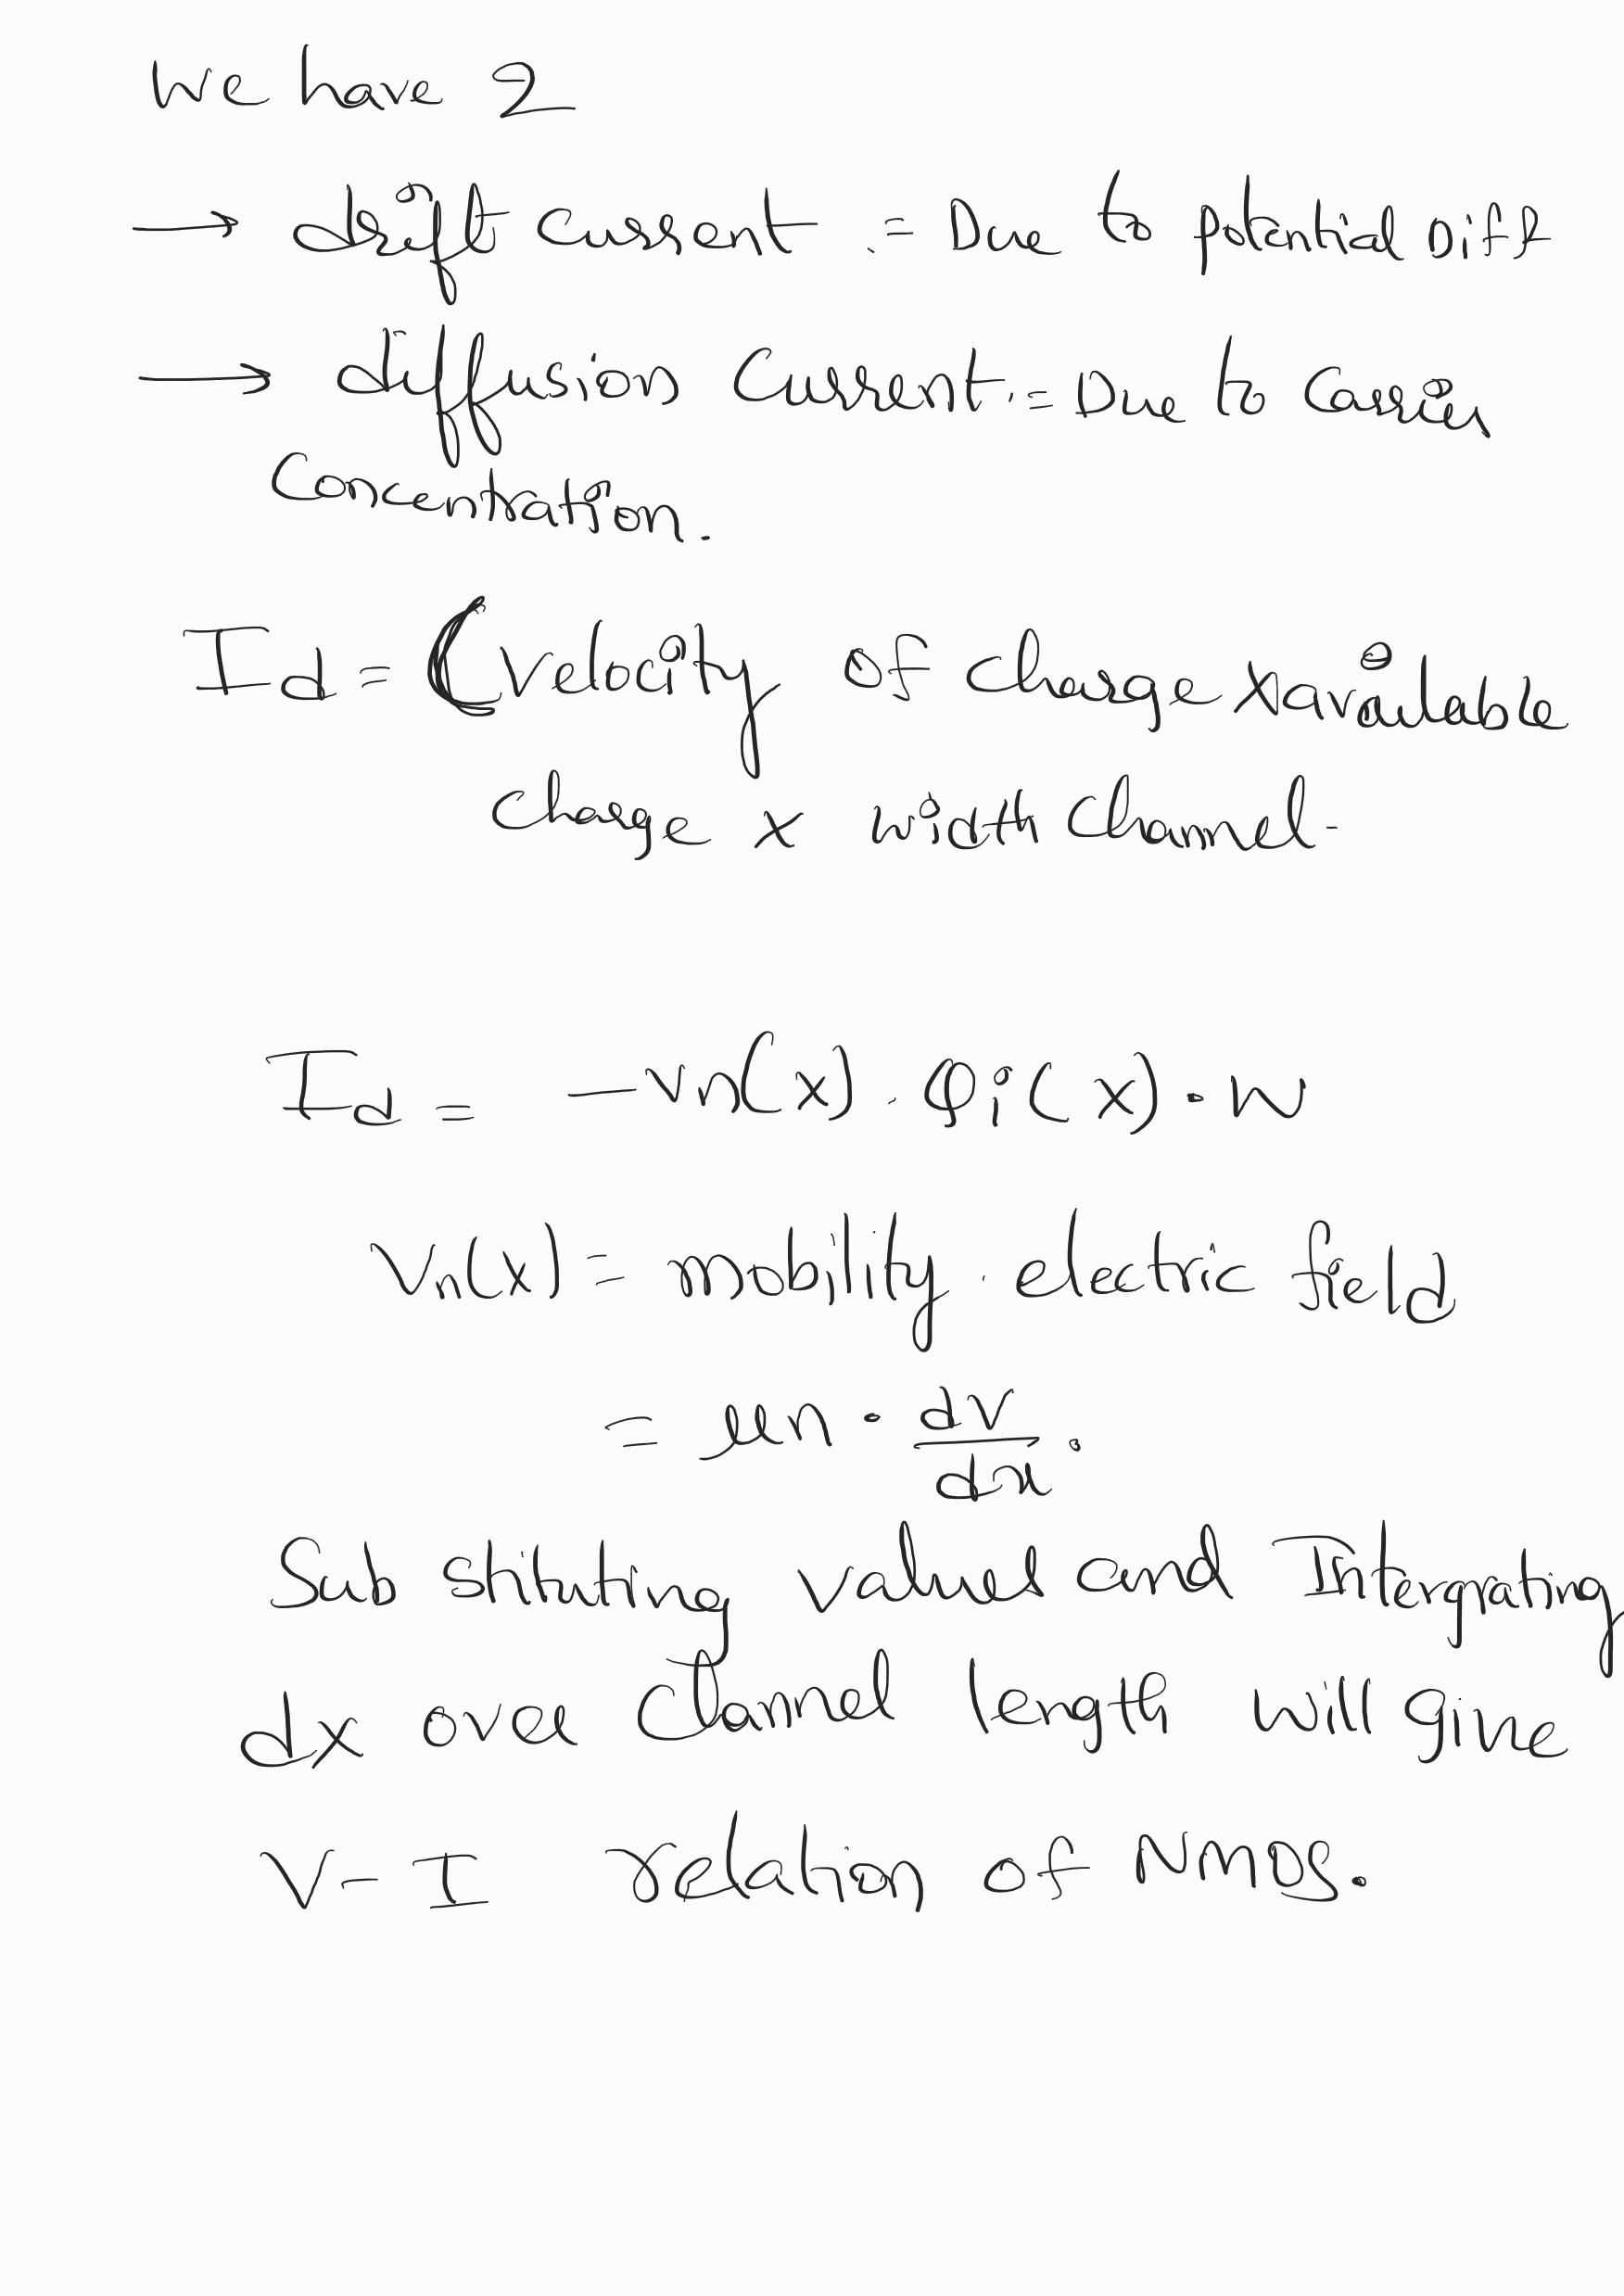 We have 2
→ drift current := Due to potential Diff
→ diffusion current := Due to carrier
concentration.
Id = (velocity of charge x available
charge x width channel-
Id = -vn(x) . Qi(x) . W
Vn(x) = mobility . electric field
= μn . dv/dx .
Sub stituting valued and Intergrating
dx over channel length will give
V-I relation of NMOS.